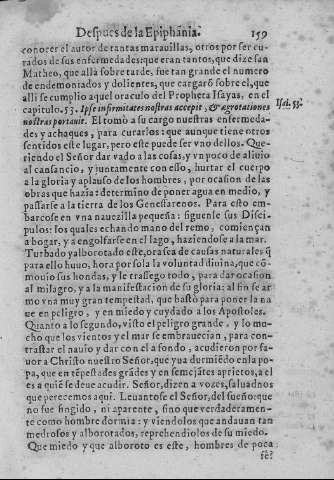 Despues de la Epiphãnia. 159
conocer el autor de tantas marauillas, otros por ser cu-
rados de sus enfermedades: que eran tantos, que dize san
Matheo, que allà sobre tarde, fue tan grande el numero
de endemoniados y dolientes, que cargarõ sobre el, que
alli se cumplio aquel oraculo del Propheta Isayas, en el
capitulo. 53. Ipse infirmitates nostras accepit, & ægrotationes
Isai. 53.
nostras portauit. El tomò a su cargo nuestras enfermeda-
des y achaques, para curarlos: que aunque tiene otros
sentidos este lugar, pero este puede ser vno dellos. Que-
riendo el Señor dar vado a las cosas, y vn poco de aliuio
al cansancio, y juntamente con esso, hurtar el cuerpo
a la gloria y aplauso de los hombres, por ocasion de las
obras que hazia: determino de poner agua en medio, y
passarse a la tierra de los Genesarenos. Para esto em-
barcose en vna nauezilla pequeña: siguenle sus Disci-
pulos: los quales echando mano del remo, comiençan
a bogar, y a engolfarse en el lago, haziendose a la mar.
Turbado y alborotado este, ora sea de causas naturales q̃
para ello huuo, hora por sola la voluntad diuina, que cõ-
mouio sus hondas, y le trassego todo, para dar ocasion
al milagro, y a la manifestacion de su gloria: al fin se ar
mo vna muy gran tempestad, que bastò para poner la na
ue en peligro, y en miedo y cuydado a los Apostoles.
Quanto a lo segundo, visto el peligro grande, y lo mu-
cho que los vientos y el mar se embrauecian, para con-
trastar el nauio y dar con el a fondo, acudieron por fa-
uor a Christo nuestro Señor, que yua durmiẽdo en la po-
pa, que en tẽpestades grãdes y en semejãtes aprietos, a el
es a quiẽ se deue acudir. Señor, dizen a vozes, saluadnos
que perecemos aqui. Leuantose el Señor, del sueño: que
no fue fingido, ni aparente, sino que verdaderamen-
te como hombre dormia: y viendolos que andauan tan
medrosos y alborotados, reprehendiolos de su miedo.
Que miedo y que alboroto es este, hombres de poca
fè?